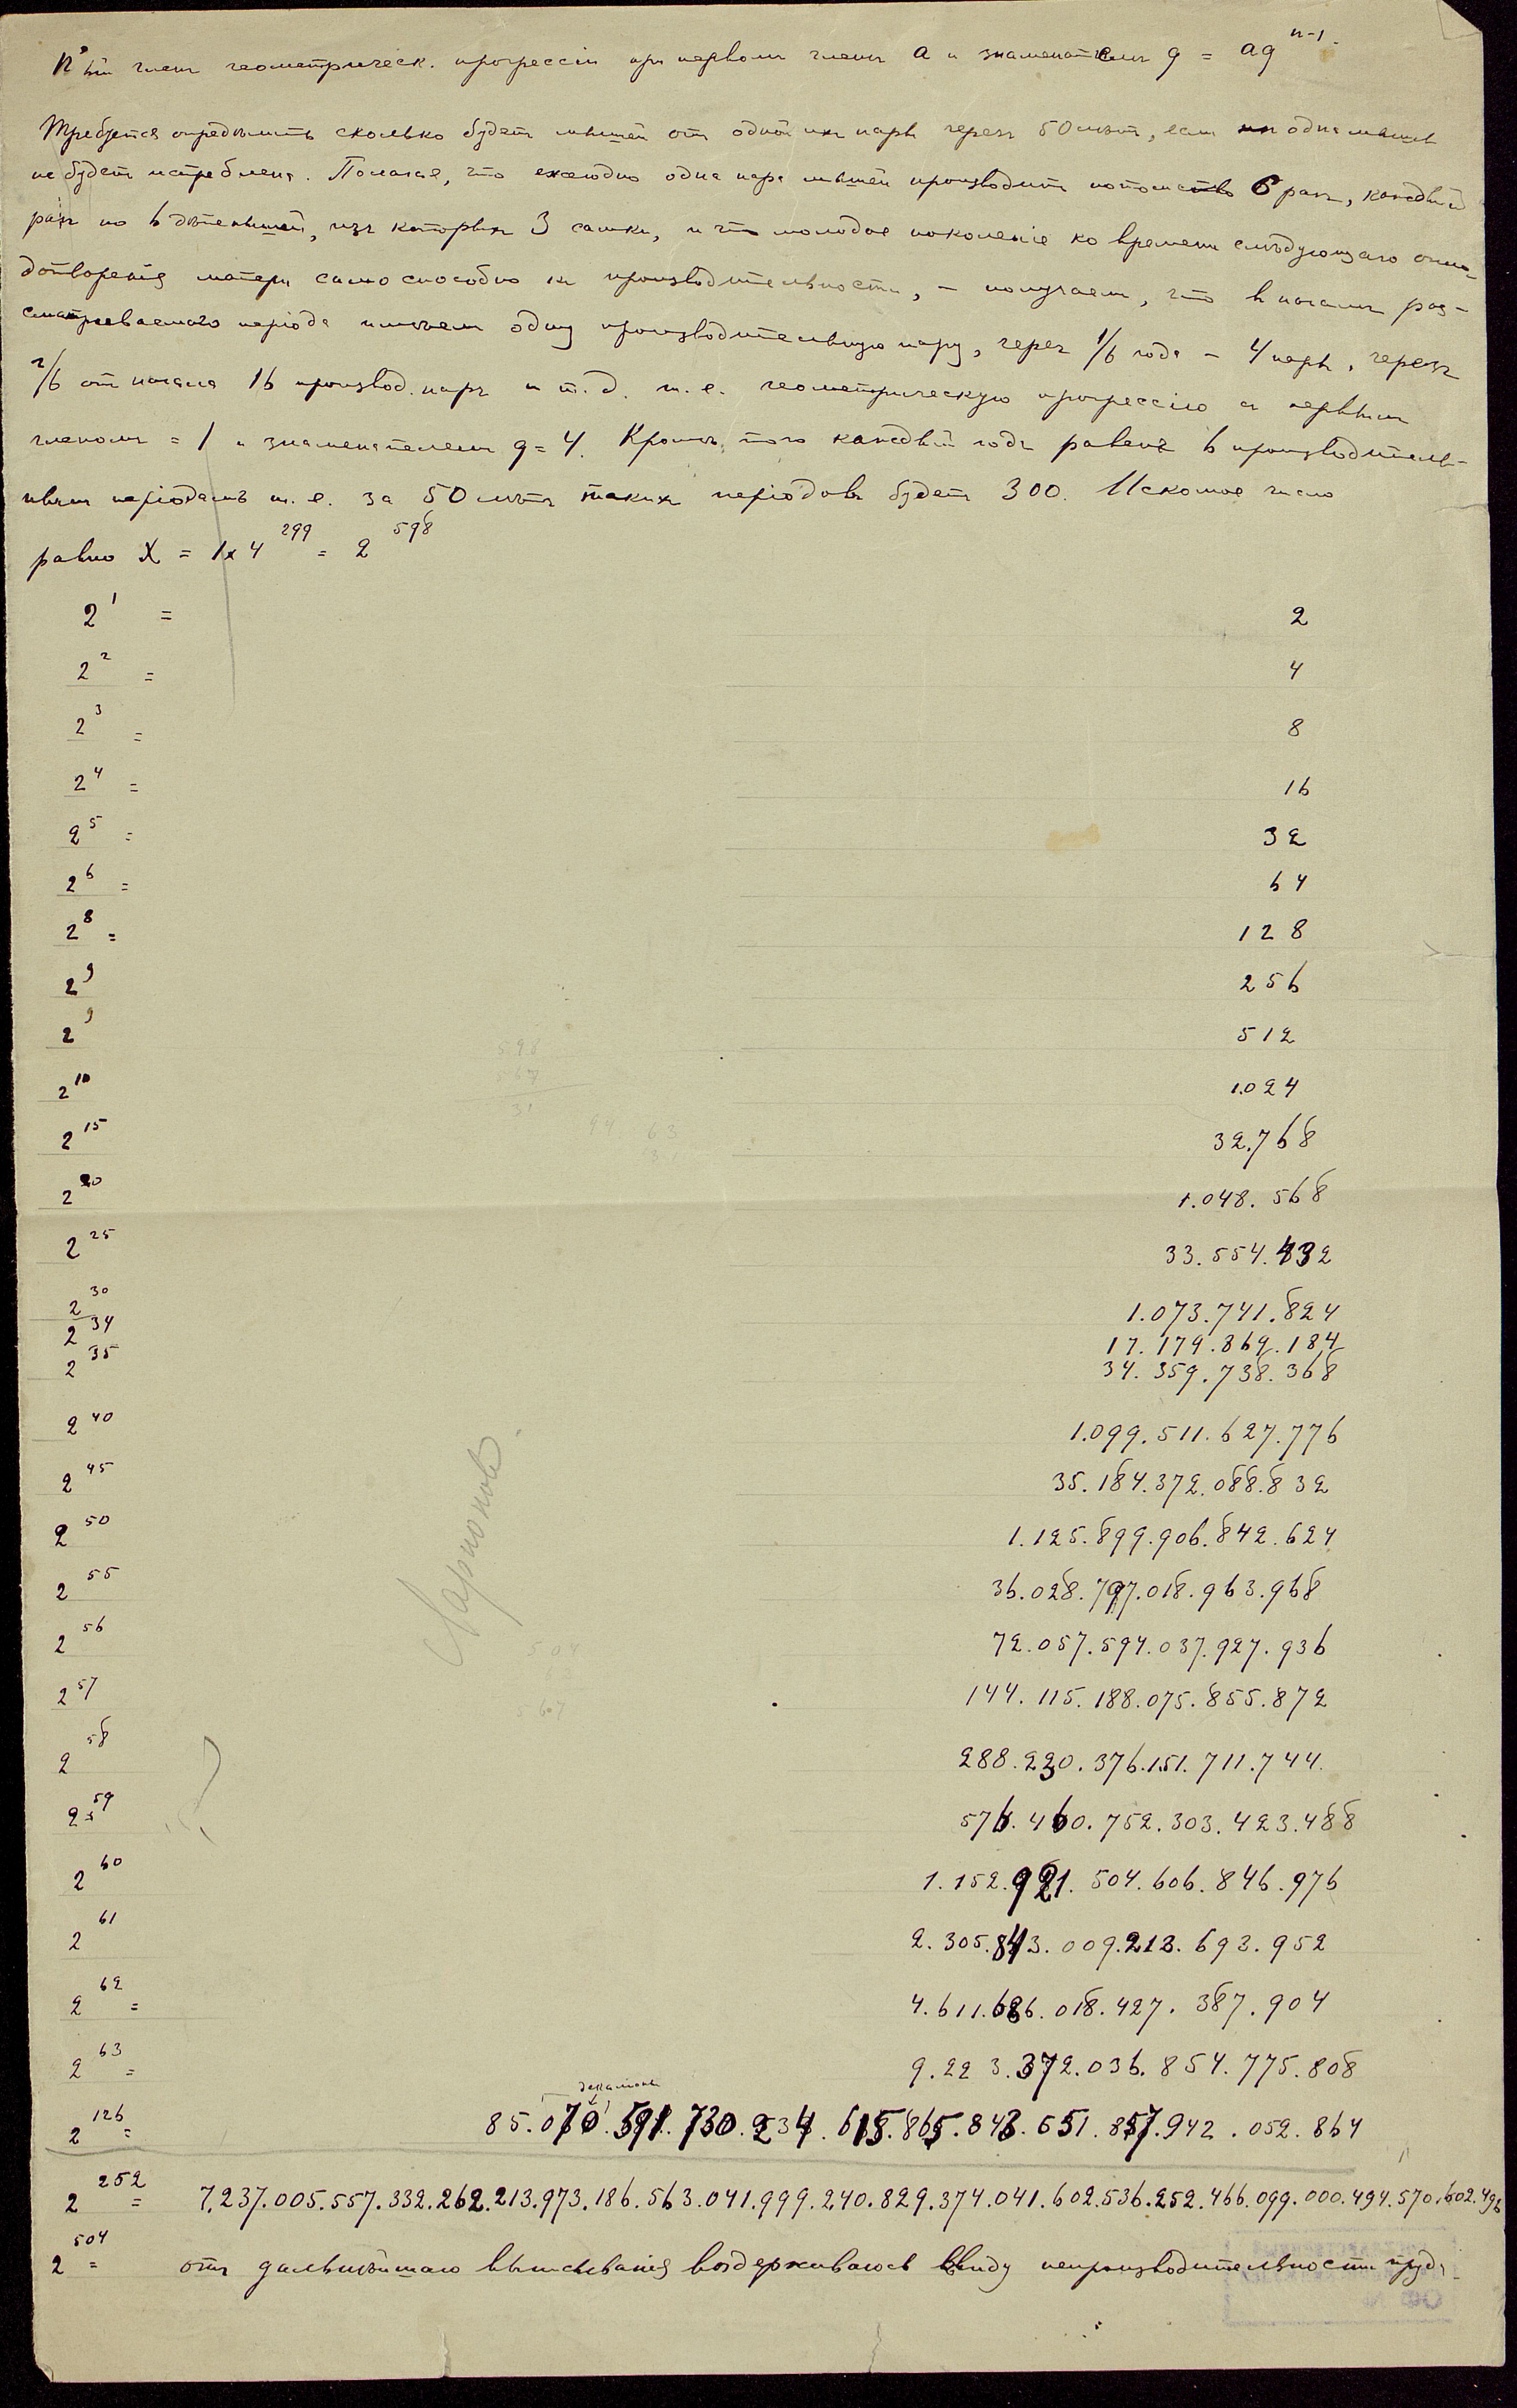 n'ый членъ геометрическ. прогрессіи при первомъ членѣ a и знаменателѣ q = aq^n-1.
Требуется опредѣлить сколько будетъ мышей отъ одной ихъ пары черезъ 50 лѣтъ, если ни одна мышь
не будетъ истреблена. Полагая, что ежегодно одна пара мышей производитъ потомство 6 разъ, каждый
разъ по 6 дѣтенышей, изъ которыхъ 3 самки, и что молодое поколеніе ко времени слѣдующаго опло-
дотворенія матери само способно къ производительности, – получаемъ, что въ началѣ раз-
сматриваемаго періода имѣемъ одну производительную пару, черезъ 1/6 года – 4 пары, черезъ
2/6 отъ начала 16 производ. паръ и т.д. т.е. геометрическую прогрессію съ первымъ
членомъ = 1 и знаменателемъ q = 4. Кромѣ того каждый годъ равенъ 6 производитель-
нымъ періодамъ т.е. за 50 лѣтъ такихъ періодовъ будетъ 300. Искомое число
равно X = 1 x 4^299 = 2^598
2^1 = 2
2^2 = 4
2^3 = 8
2^4 = 16
2^5 = 32
2^6 = 64
2^8 = 128
2^9 256
2^9 512
2^10 1.024
2^15 32.768
2^20 1.048.568
2^25 33.554.432
2^30 1.073.741.824
2^34 17.179.869.184
2^35 34.359.738.368
2^40 1.099.511.627.776
2^45 35.184.372.088.832
2^50 1.125.899.906.842.624
2^55 36.028.797.018.963.968
2^56 72.057.594.037.927.936
2^57 144.115.188.075.855.872
2^58 288.230.376.151.711.744.
2^59 576.460.752.303.423.488
2^60 1.152.921.504.606.846.976
2^61 2.305.843.009.213.693.952
2^62 = 4.611.686.018.427.387.904
2^63 = 9.223.372.036.854.775.808
2^126 = 85.070.591.730.234.615.865.843.651.857.942.052.864
2^252 = 7.237.005.557.332.262.213.973.186.563.041.999.240.829.374.041.602.536.252.466.099.000.494.570.602.496
2^504 = отъ дальнѣйшаго вычисыванія воздерживаюсь ввиду непроизводительности труда.
Ларіоновъ.